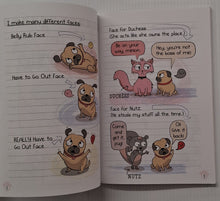 I make many different faces
Belly Rub Face
Have to Go Out Face
REALLY Have to
Go Out Face
Face for Duchess
(She acts like she owns the place.)
Be on your
way minion.
Hey, you're not
the boss of me!
DUCHESS
Face for Nutz
(He steals my stuff all the time.)
Come
and get
it pug!
Give it
back!
NUTZ